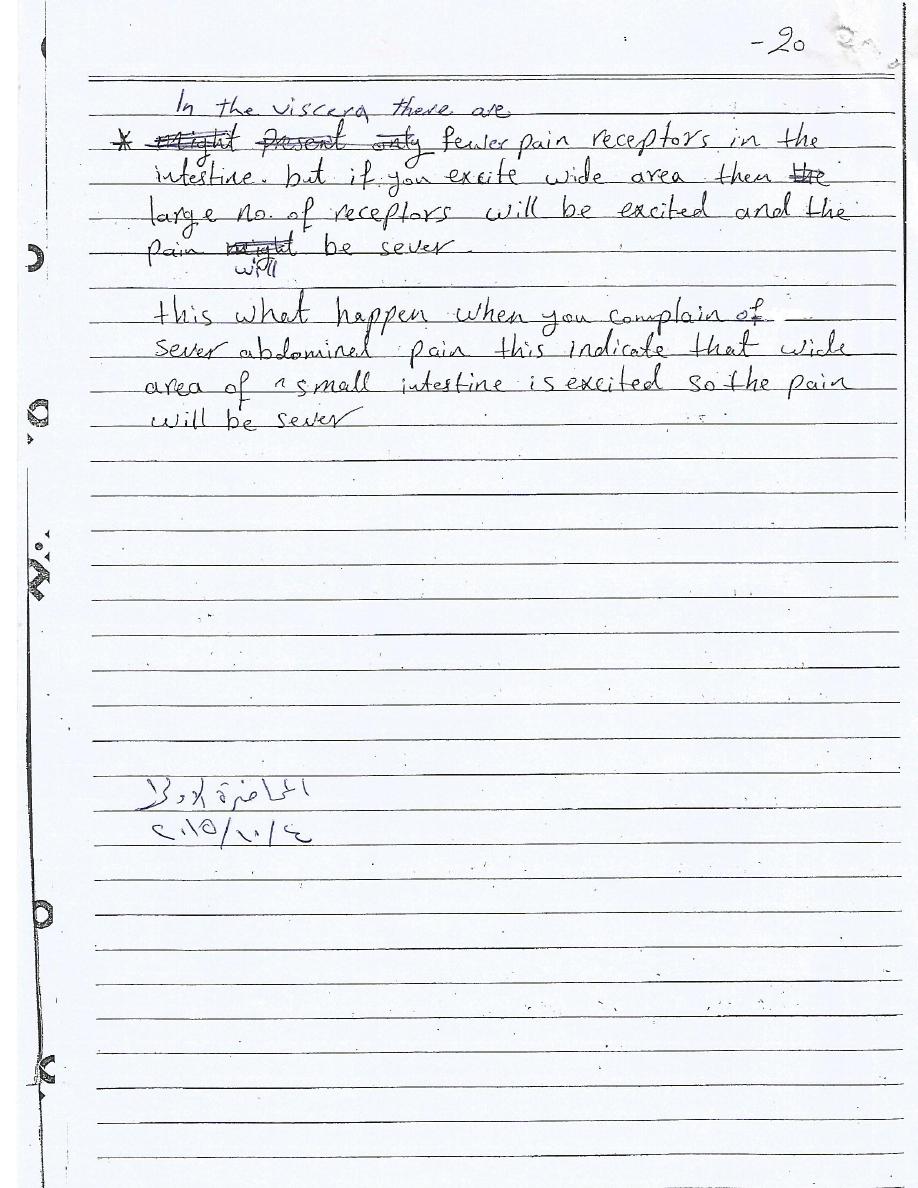 -20
In the viscera there are
* might Present only fewer pain receptors in the
intestine. but if you excite wide area then the
large no. of receptors will be excited and the
pain might be sever
will
this what happen when you complain of
sever abdomined pain this indicate that wide
area of small intestine is excited so the pain
will be sever
المحاضرة الاولى
٢٠١٥/١٠/٤